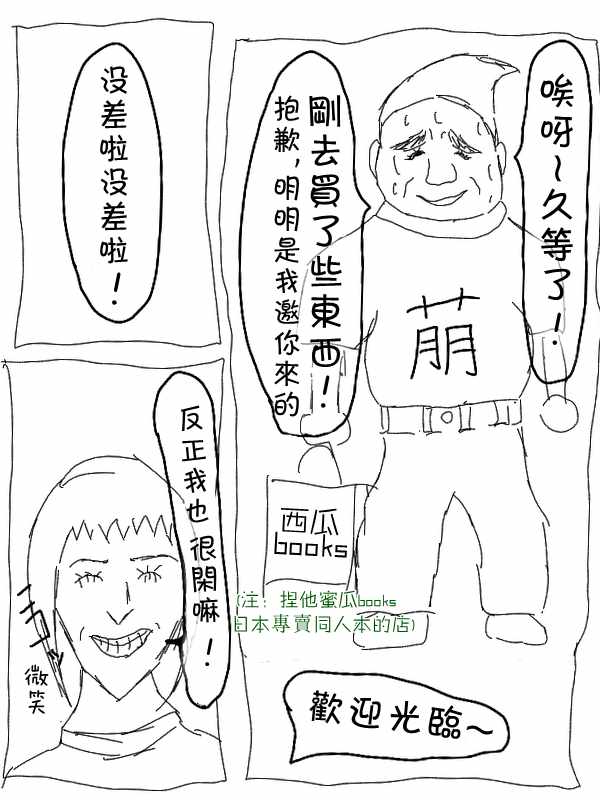 唉呀～久等了！
剛去買了些東西！
抱歉,明明是我邀你來的
萠
西瓜
books
(注：捏他蜜瓜books
日本專賣同人本的店)
歡迎光臨～
没差啦没差啦！
反正我也很閑嘛！
ニコッ
微笑